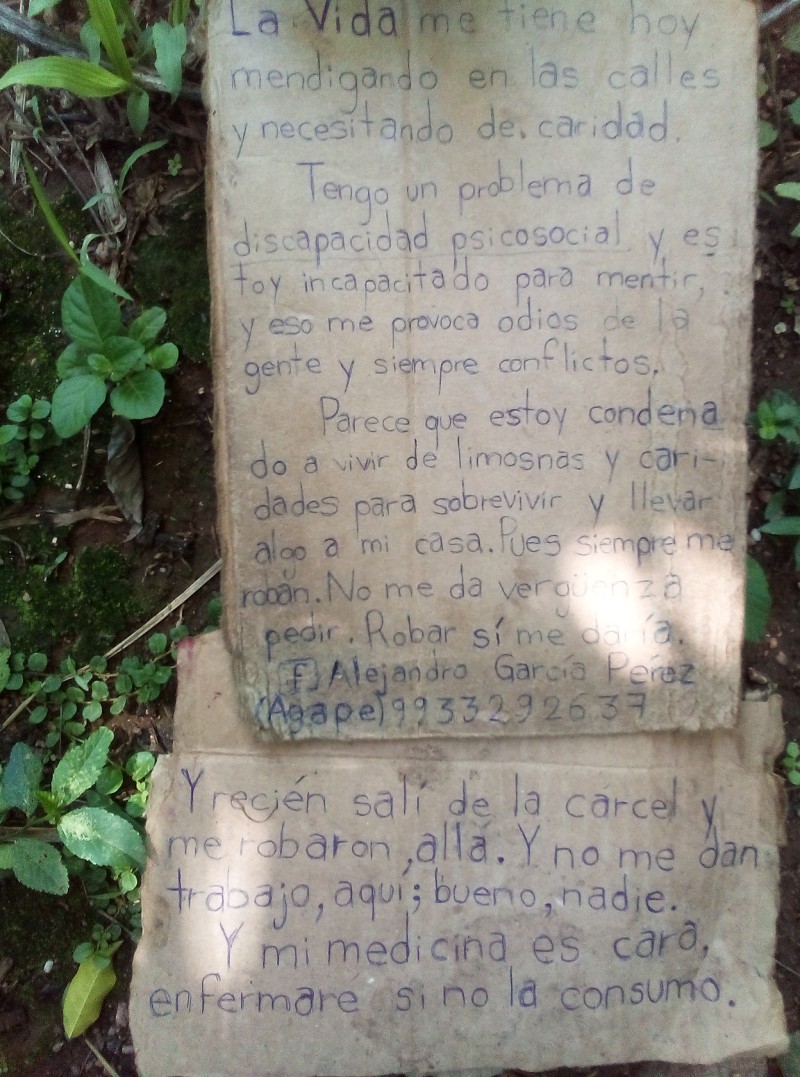 La Vida me tiene hoy
mendigando en las calles
y necesitando de. caridad.
Tengo un problema de
discapacidad psicosocial y es
toy incapacitado para mentir,
y eso me provoca odios de la
gente y siempre conflictos.
Parece que estoy condena
do a vivir de limosnas y cari-
dades para sobrevivir y llevar
algo a mi casa. Pues siempre me
roban. No me da vergüenza
pedir. Robar sí me daría.
F Alejandro García Peréz
(Agape) 9933292637
Y recién salí de la cárcel y
me robaron, allá. Y no me dan
trabajo, aquí; bueno, nadie.
Y mi medicina es cara,
enfermaré si no la consumo.